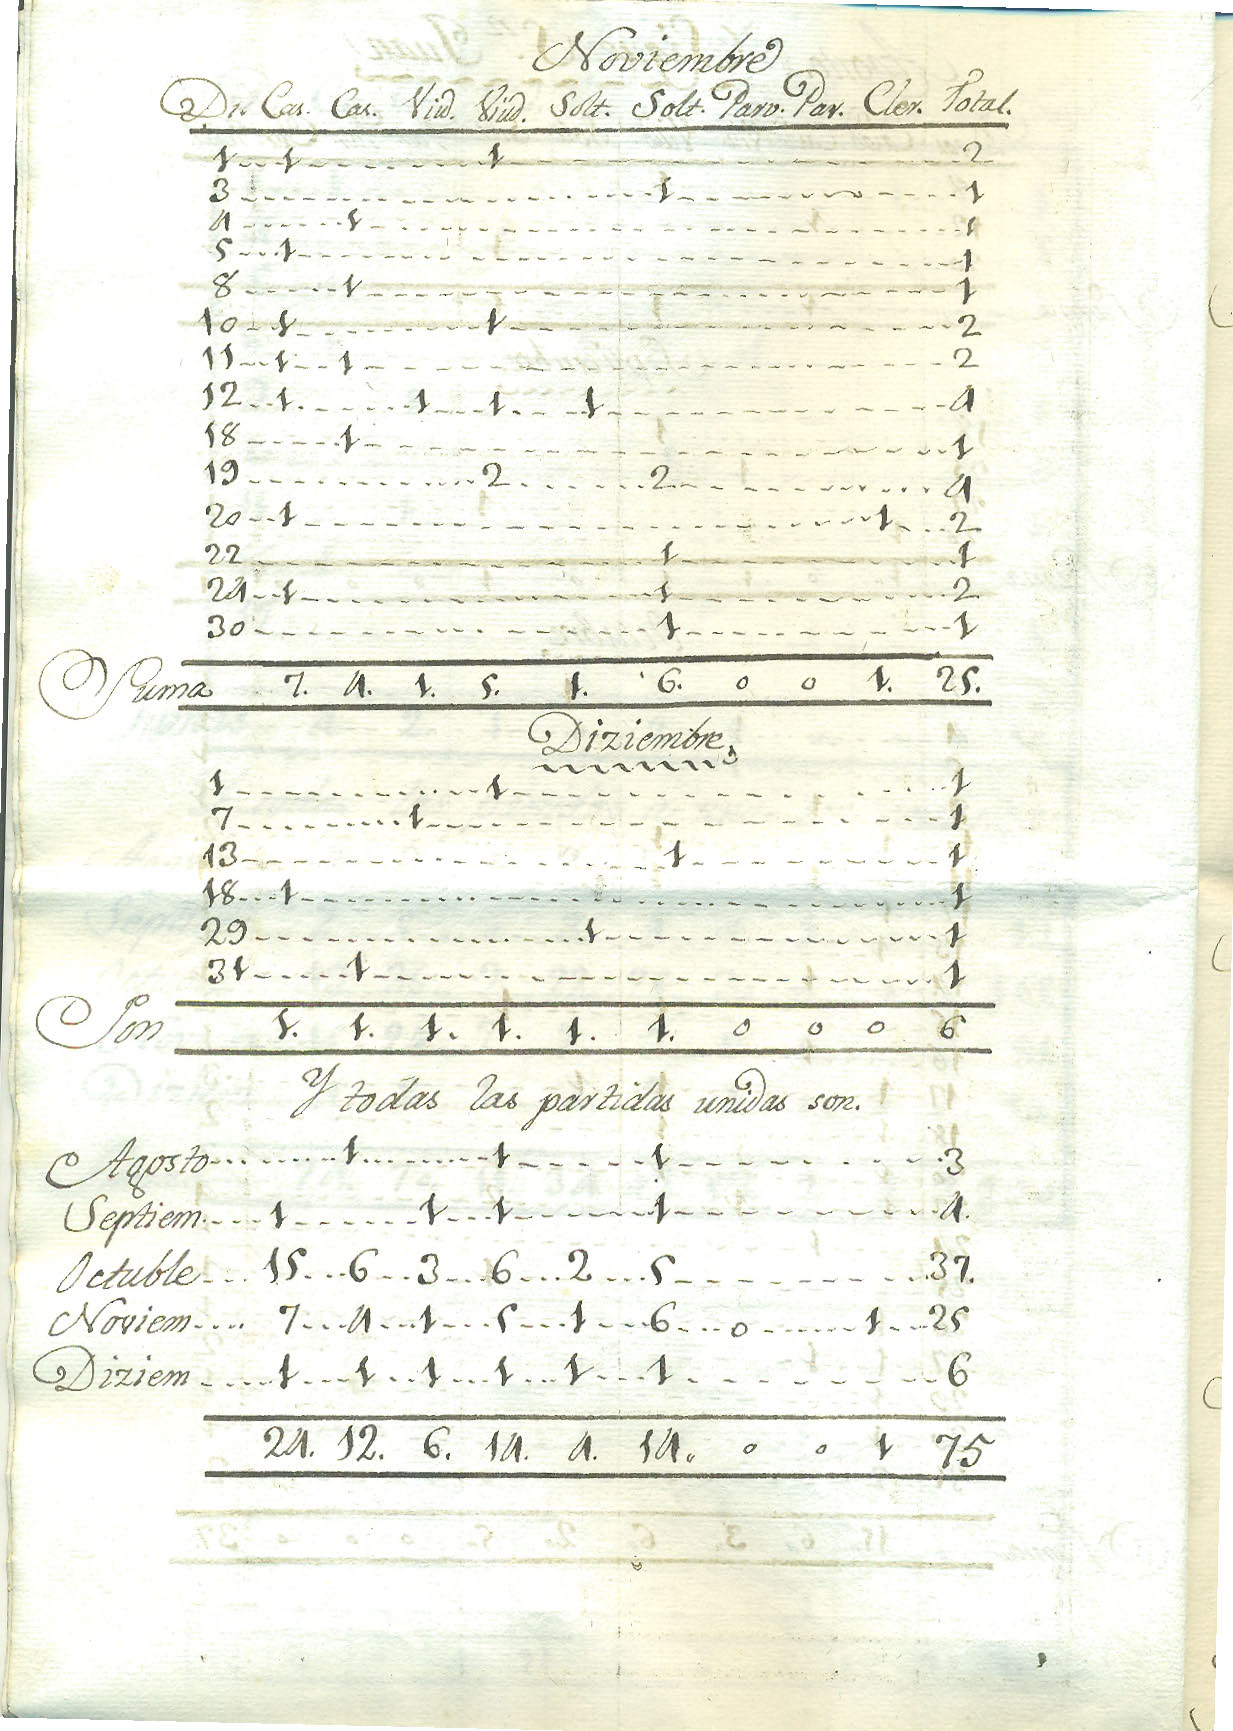 Noviembre
Ds. Cas. Cas. Viud. Viud. Solt. Solt. Parv. Par. Cler. Total.
1 1 1 2
3 1 1
4 1 1
5 1 1
8 1 1
10 1 1 2
11 1 1 2
12 1 1 1 1 4
18 1 1
19 2 2 4
20 1 1 2
22 1 1
24 1 1 2
30 1 1
Suma 7. 4. 1. 5. 1. 6. 0 0 1. 25.
Diziembre.
1 1 1
7 1 1
13 1 1
18 1 1
29 1 1
31 1 1
Son 1. 1. 1. 1. 1. 1. 0 0 0 6
Y todas las partidas unidas son.
Agosto 1 1 1 3
Septiem. 1 1 1 1 4.
Octuble 15 6 3 6 2 5 37.
Noviem 7 4 1 5 1 6 0 1 25
Diziem 1 1 1 1 1 1 6
24. 12. 6. 14. 4. 14. 0 0 1 75